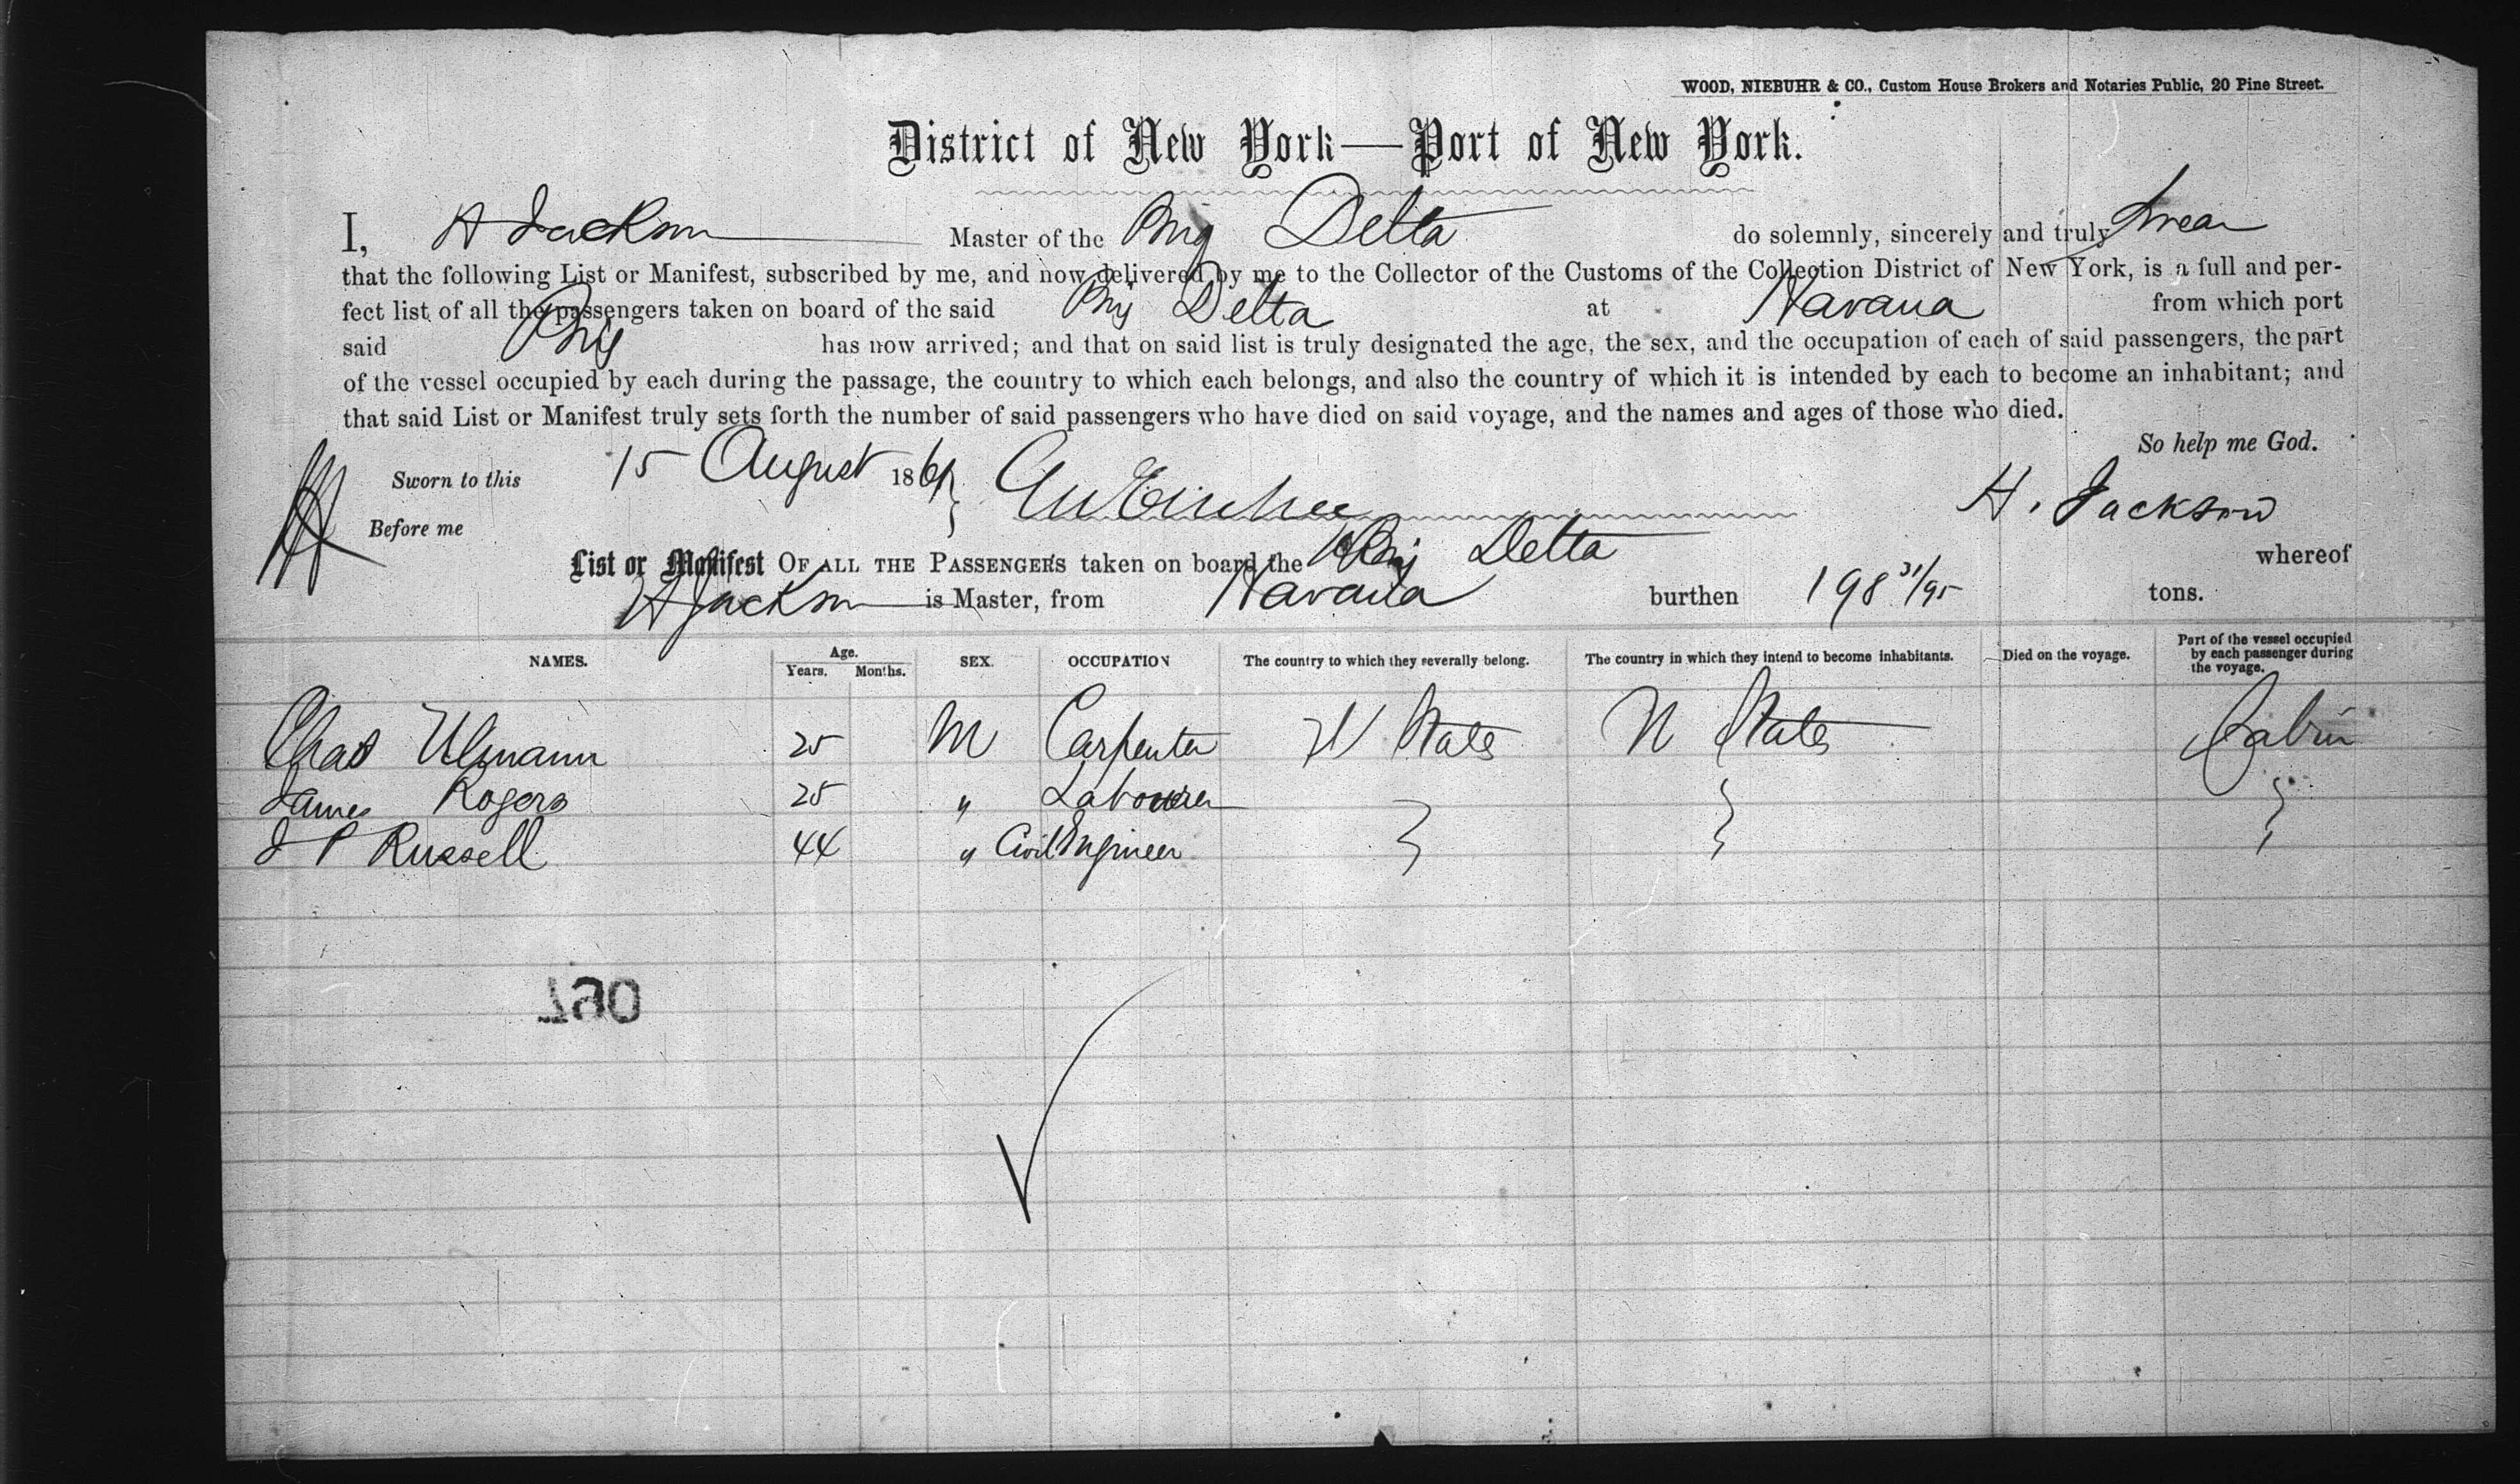 WOOD, NIEBUHR & CO., Custom House Brokers and Notaries Public, 20 Pine Street.
District of New York—Port of New York.
I, H Jackson Master of the Brig Delta do solemnly, sincerely and truly swear
that the following List or Manifest, subscribed by me, and now delivered by me to the Collector of the Customs of the Collection District of New York, is a full and per-
fect list of all the passengers taken on board of the said Brig Delta at Havana from which port
said Brig has now arrived; and that on said list is truly designated the age, the sex, and the occupation of each of said passengers, the part
of the vessel occupied by each during the passage, the country to which each belongs, and also the country of which it is intended by each to become an inhabitant; and
that said List or Manifest truly sets forth the number of said passengers who have died on said voyage, and the names and ages of those who died.
So help me God.
Sworn to this 15 August 1861
Before me
H. Jackson
List or Manifest OF ALL THE PASSENGERS taken on board the Brig Delta whereof
H Jackson is Master, from Havana burthen 198 31/95 tons.
NAMES. Age. Years. Months. SEX. OCCUPATION The country to which they severally belong. The country in which they intend to become inhabitants. Died on the voyage. Part of the vessel occupied by each passenger during the voyage.
Chas Ulmann 25 M Carpenter U States U States Cabin
James Rogers 25 " Labourer
J P Russell 44 " Civil Engineer